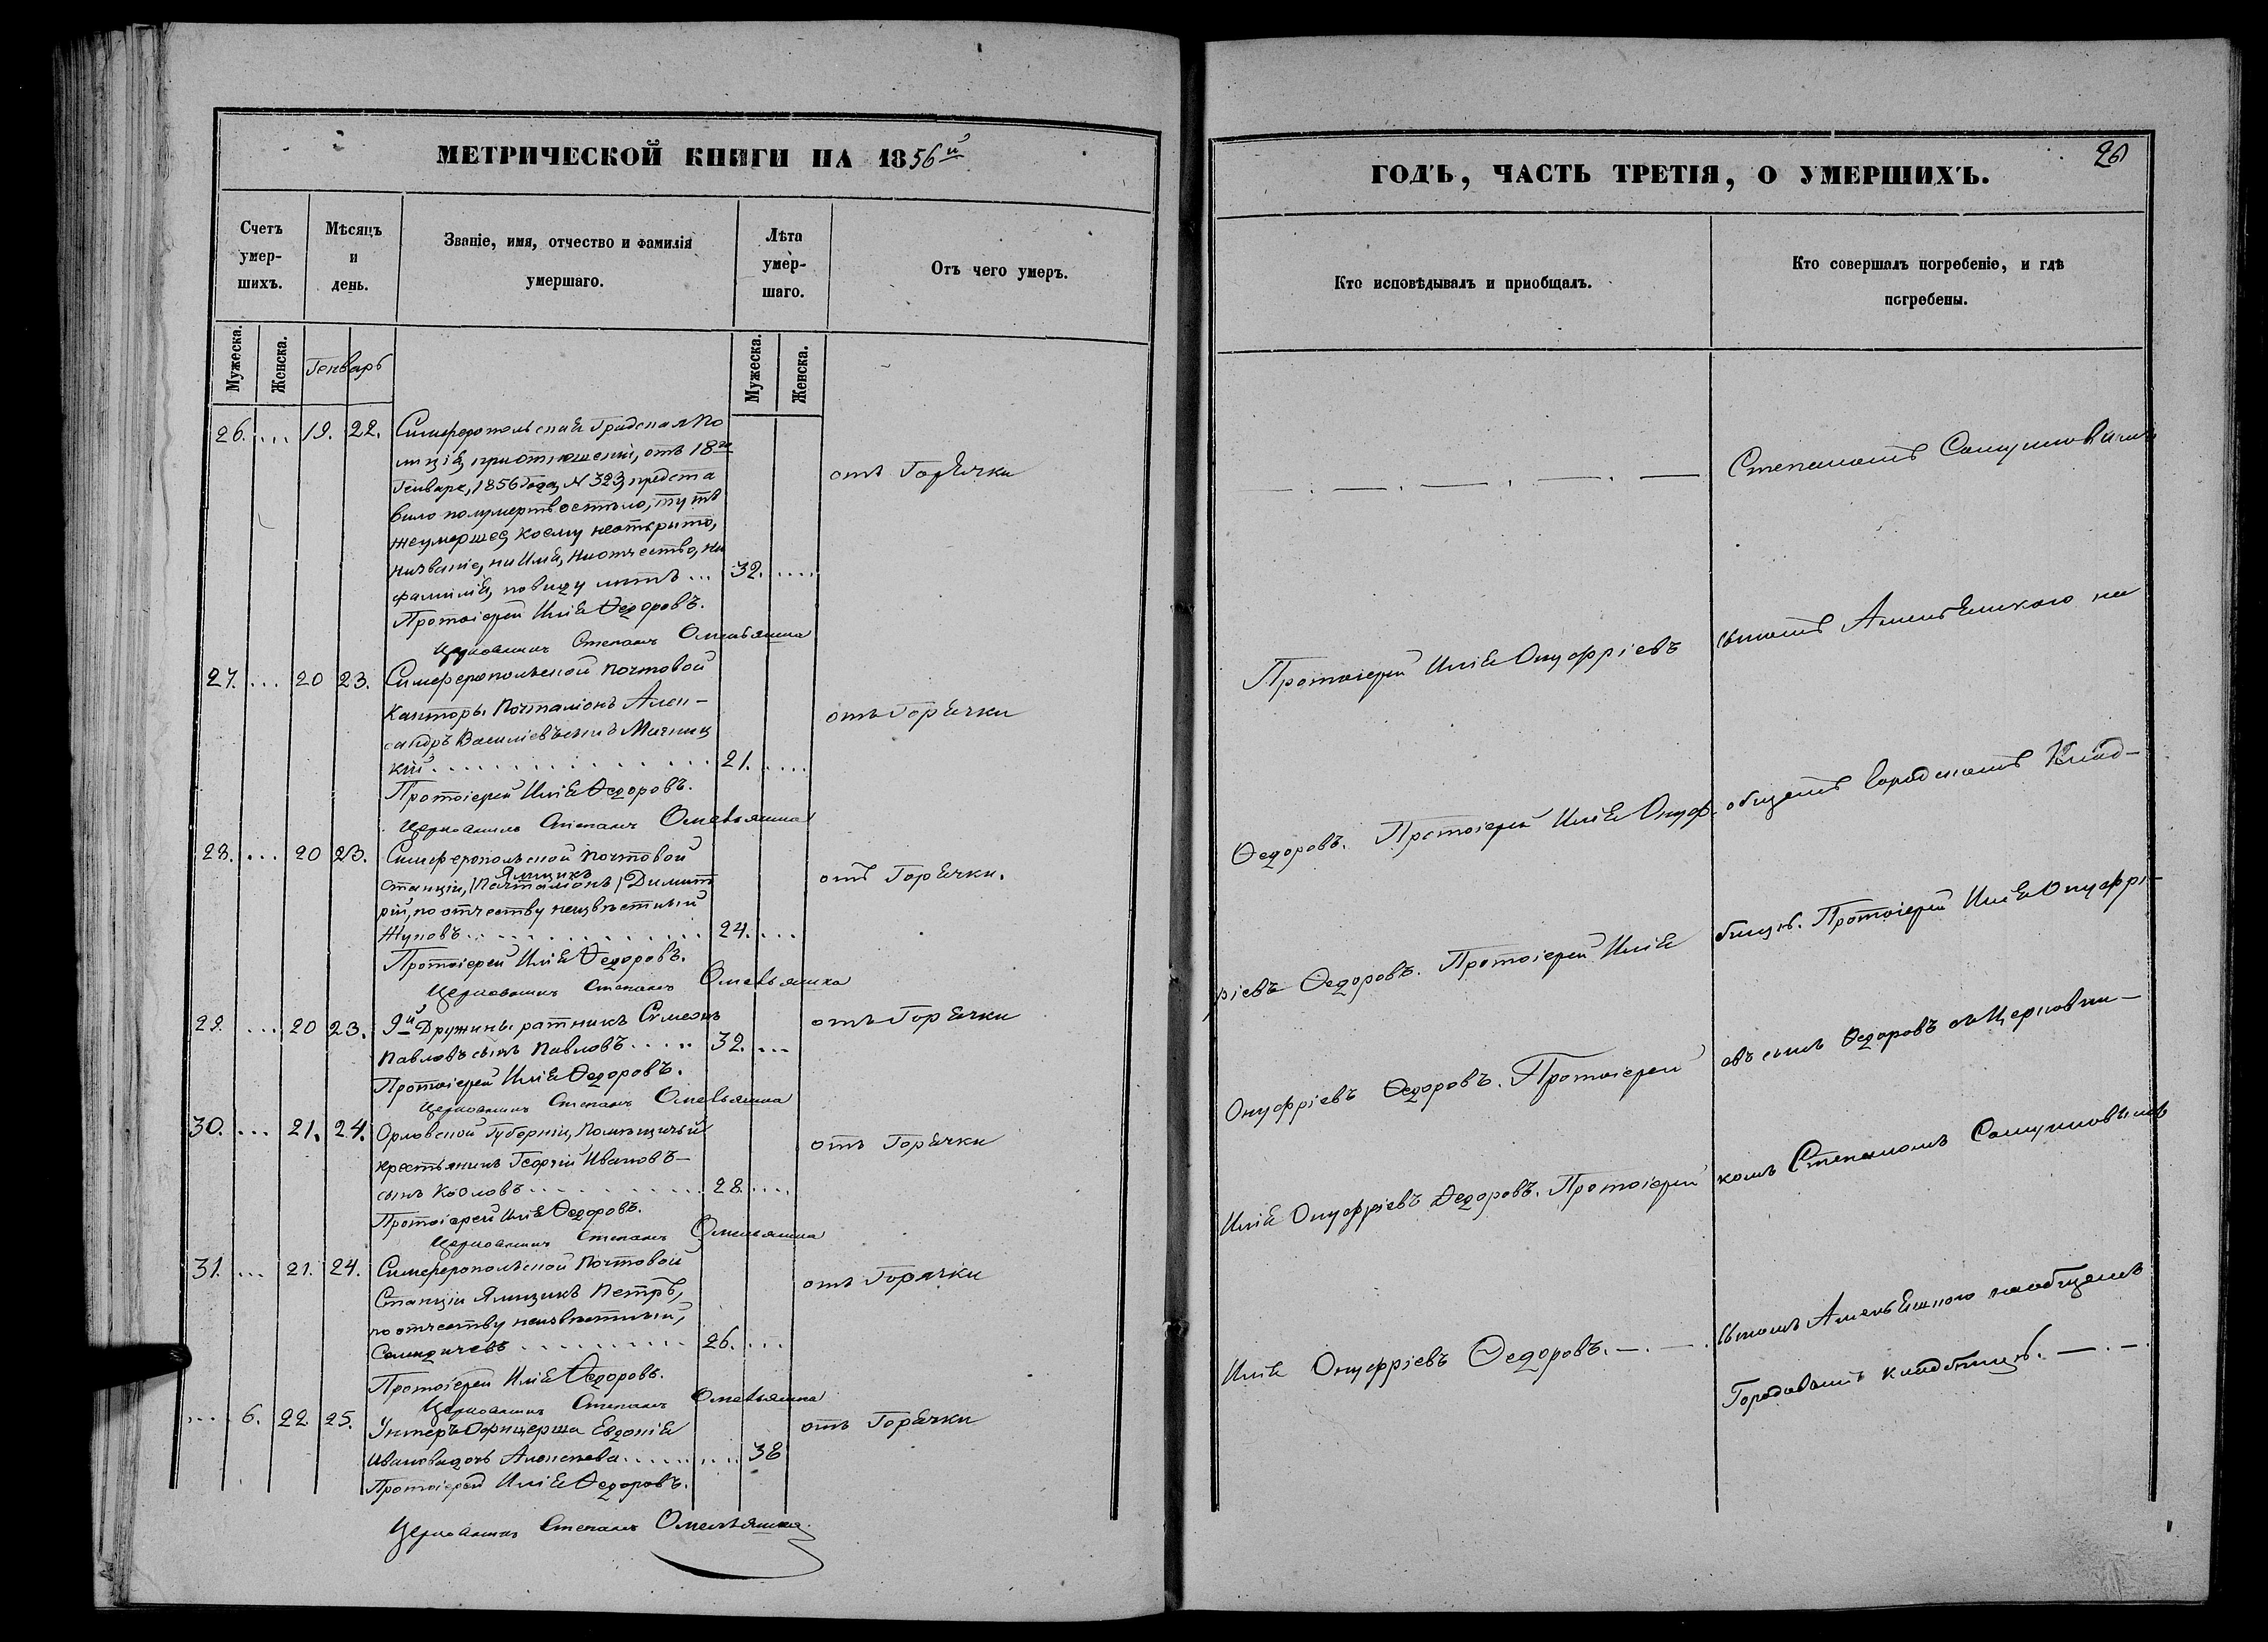 МЕТРИЧЕСКОЙ КНИГИ НА 1856й
Счетъ
умер-
шихъ.
Мѣсяцъ
и
день.
Званіе, имя, отчество и фамилія
умершаго.
Лѣта
умер-
шаго.
Отъ чего умеръ.
Мужеска.
Женска.
Генварь
Мужеска.
Женска.
26. ... 19. 22. Симферопольская Градская По
лиція, при отношеніи, отъ 18го
Генваря, 1856 Года, № 323, предста
вила полумертвое тѣло, тутъ
же умершее, коему неоткрыто,
ни званіе, ни имя, ни отчество, ни
фамилія, по виду лѣтъ ... 32. ....
отъ Горячки
Протоіерей Илія Ѳедоровъ.
Церковникъ Степанъ
27. ... 20 23. Симферопольской Почтовой
Канторы Почталіонъ Алек-
сандръ Василіевъ сынъ
кій 21. ....
отъ Горячки
Протоіерей Илія Ѳедоровъ.
Церковникъ Степанъ
28. ... 20 23. Симферопольской Почтовой
Ямщикъ
станціи, /Почталіонъ/ Димит
рій, по отчеству неизвѣстный
Жуковъ 24. ....
отъ Горячки.
Протоіерей Илія Ѳедоровъ.
Церковникъ Степанъ
29. ... 20 23. 9й Дружины ратникъ Сѵмеонъ
Павловъ сынъ Павловъ ..... 32. ...
отъ Горячки
Протоіерей Илія Ѳедоровъ.
Церковникъ Степанъ
30. ... 21. 24. Орловской Губерніи, Помѣщичій
крестьянинъ Георгій Ивановъ-
сынъ Козловъ 28. ....
отъ Горячки
Протоіерей Илія Ѳедоровъ.
Церковникъ Степанъ
31. ... 21. 24. Симферопольской Почтовой
Станціи Ямщикъ Петръ,
по отчеству неизвѣстный,
26. ...
отъ Горячки
Протоіерей Илія Ѳедоровъ.
Церковникъ Степанъ
.... 6. 22. 25. Унтеръ Офицерша Евдокія
Иванова дочь 38
отъ Горячки
Протоіерей Илія Ѳедоровъ.
Церковникъ Степанъ
26
ГОДЪ, ЧАСТЬ ТРЕТІЯ, О УМЕРШИХЪ.
Кто исповѣдывалъ и пріобщалъ.
Кто совершалъ погребеніе, и гдѣ
погребены.
Протоіерей Илія Онуфріевъ
Ѳедоровъ. Протоіерей Илія Онуф-
ріевъ Ѳедоровъ. Протоіерей Илія
Онуфріевъ Ѳедоровъ. Протоіерей
Илія Онуфріевъ Ѳедоровъ. Протоіерей
Илія Онуфріевъ Ѳедоровъ.
Степаномъ Самуиловымъ
сыномъ на
общемъ Городскомъ Клад-
бищѣ. Протоіерей Илія Онуфрі-
евъ сынъ Ѳедоровъ съ Церковни-
комъ Степаномъ Самуиловымъ
сыномъ на общемъ
Городскомъ кладбищѣ.